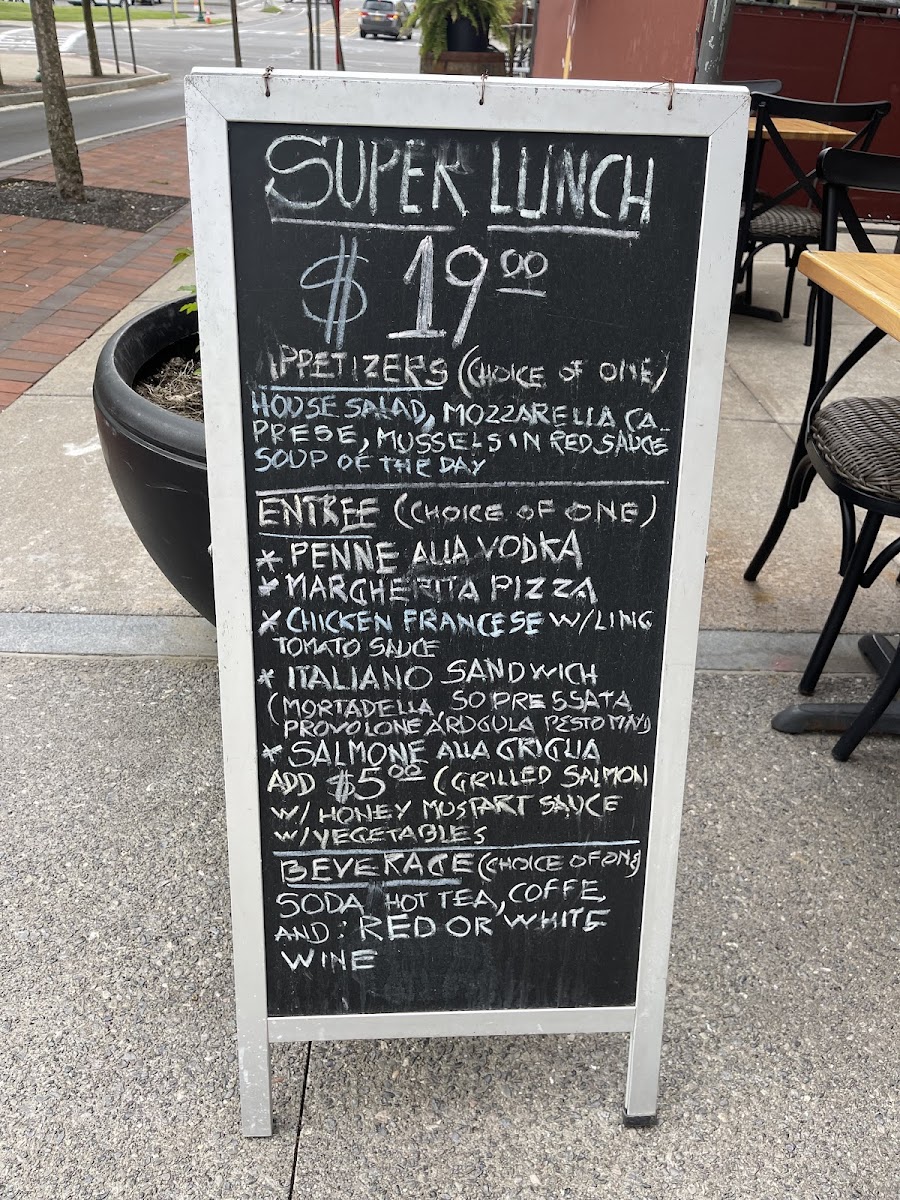 SUPER LUNCH
$ 19.00
APPETIZERS (CHOICE OF ONE)
HOUSE SALAD, MOZZARELLA CA-
PRESE, MUSSELS IN RED SAUCE
SOUP OF THE DAY
ENTREE (CHOICE OF ONE)
* PENNE ALLA VODKA
* MARGHERITA PIZZA
* CHICKEN FRANCESE W/LING
TOMATO SAUCE
* ITALIANO SANDWICH
(MORTADELLA SOPRESSATA
PROVOLONE ARUGULA PESTO MAYO
* SALMONE ALLA GRIGLIA
ADD $5.00 (GRILLED SALMON
W/ HONEY MUSTART SAUCE
W/VEGETABLES
BEVERAGE (CHOICE OF ONE)
SODA HOT TEA, COFFE
AND: RED OR WHITE
WINE